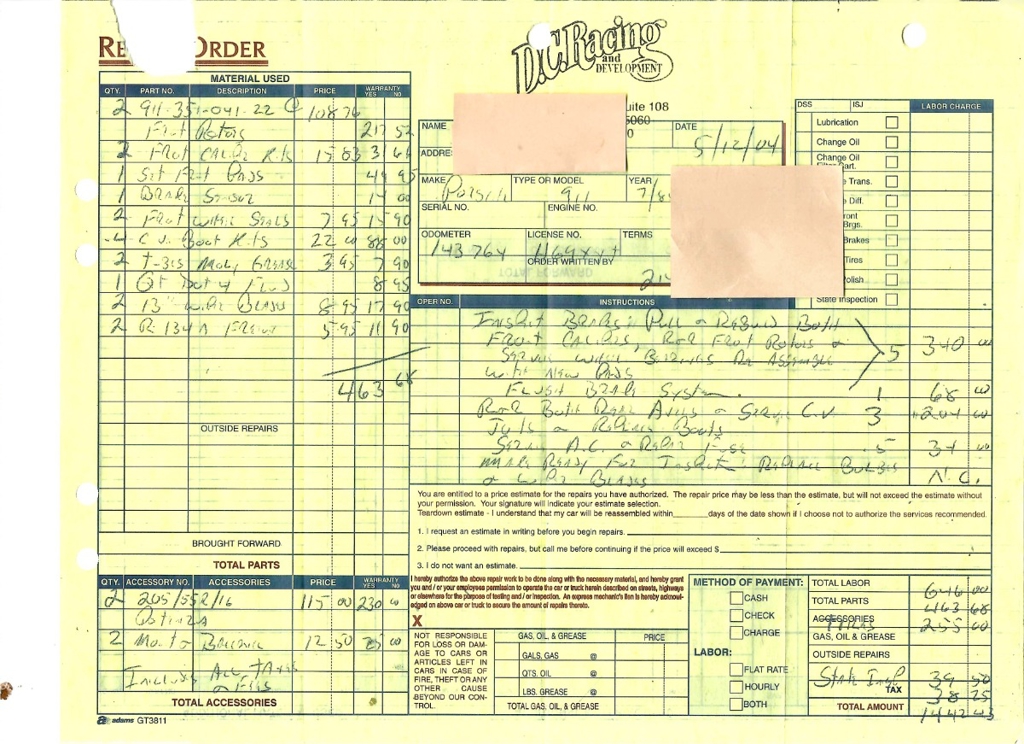 RE ORDER
D.C. Racing
and
DEVELOPMENT
uite 108
5060
0
MATERIAL USED
QTY. PART NO. DESCRIPTION PRICE WARRANTY YES NO
2 911-351-041-22 @ 108 76
Frnt Rotors 217 52
2 Frnt Calipr Kits 15 83 31 66
1 Set Frt Pads 49 95
1 Brake Sensor 14 00
2 Frnt Wheel Seals 7 95 15 90
4 C.V. Boot Kits 22 00 88 00
2 Moly Grease 3 95 7 90
1 Qt Dot 4 Fluid 8 95
2 13" Wiper Blades 8 95 17 90
2 R-134A Freon 5 95 11 90
463 68
OUTSIDE REPAIRS
BROUGHT FORWARD
TOTAL PARTS
QTY. ACCESSORY NO. ACCESSORIES PRICE WARRANTY YES NO
2 205/55 /16 115 00 230 00
2 Mount & Balance 12 50 25 00
Includes All Taxes
& Fees
TOTAL ACCESSORIES
adams GT3811
NAME
DATE 5/12/04
ADDRE
MAKE Porsch TYPE OR MODEL 911 YEAR
SERIAL NO. ENGINE NO.
ODOMETER 143764 LICENSE NO. TERMS
ORDER WRITTEN BY
TOTAL FORWARD
DSS ISJ LABOR CHARGE
Lubrication
Change Oil
Change Oil
Filter Cart.
Trans.
Diff.
ront
Brgs.
Brakes
Tires
Polish
State Inspection
OPER NO. INSTRUCTIONS
Inspect Brakes, Pull & Rebuild Both
Front Calipers, R&R Front Rotors &
Service Wheel Bearings Re Assemble 5 340 00
With New Pads
Flush Brake System 1 68 00
R&R Both Rear Axles & Service C.V. 3 204 00
Jnts & Replace Boots
Service A.C. & Repair Fuse .5 34 00
Make Ready For Inspect Replace Bulbs
& Wiper Blades N.C.
You are entitled to a price estimate for the repairs you have authorized. The repair price may be less than the estimate, but will not exceed the estimate without
your permission. Your signature will indicate your estimate selection.
Teardown estimate - I understand that my car will be reassembled within ______ days of the date shown if I choose not to authorize the services recommended.
1. I request an estimate in writing before you begin repairs.
2. Please proceed with repairs, but call me before continuing if the price will exceed $
3. I do not want an estimate.
I hereby authorize the above repair work to be done along with the necessary material, and hereby grant
you and / or your employees permission to operate the car or truck herein described on streets, highways
or elsewhere for the purpose of testing and / or inspection. An express mechanic's lien is hereby acknowl-
edged on above car or truck to secure the amount of repairs thereto.
X
NOT RESPONSIBLE
FOR LOSS OR DAM-
AGE TO CARS OR
ARTICLES LEFT IN
CARS IN CASE OF
FIRE, THEFT OR ANY
OTHER CAUSE
BEYOND OUR CON-
TROL.
GAS, OIL, & GREASE PRICE
GALS. GAS @
QTS. OIL @
LBS. GREASE @
TOTAL GAS, OIL, & GREASE
METHOD OF PAYMENT:
CASH
CHECK
CHARGE
LABOR:
FLAT RATE
HOURLY
BOTH
TOTAL LABOR 646 00
TOTAL PARTS 463 68
ACCESSORIES Tires 255 00
GAS, OIL & GREASE
OUTSIDE REPAIRS
State Insp 39 50
TAX 38 25
TOTAL AMOUNT 1442 43